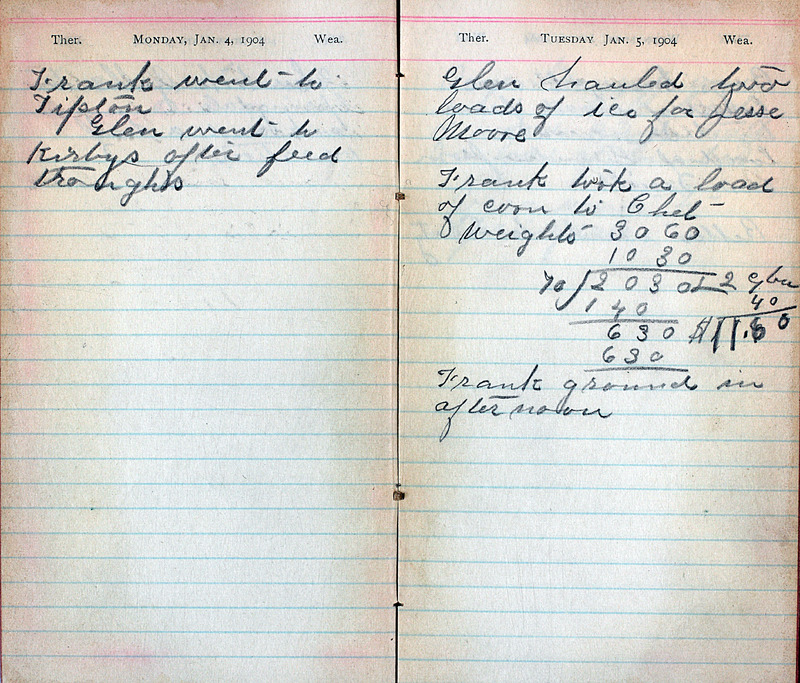 Ther. MONDAY, JAN. 4, 1904 Wea.
Frank went to
Tipton
Glen went to
Kirbys after feed
troughs
Ther. TUESDAY JAN. 5, 1904 Wea.
Glen hauled two
loads of ice for Jesse
Moore
Frank took a load
of corn to Chet
Weights 3060
1030
70 / 2030 / 29 bu
140 40
630 $11.60
630
Frank ground in
afternoon